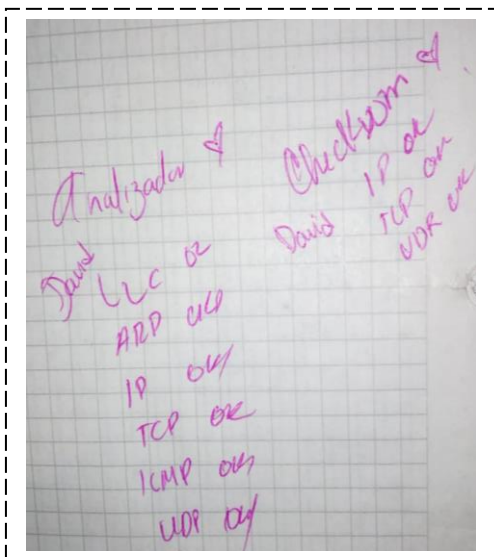 Analizador
David
LLC ok
ARP ok
IP ok
TCP ok
ICMP ok
UDP ok
Checksum
David
IP ok
TCP ok
UDP ok